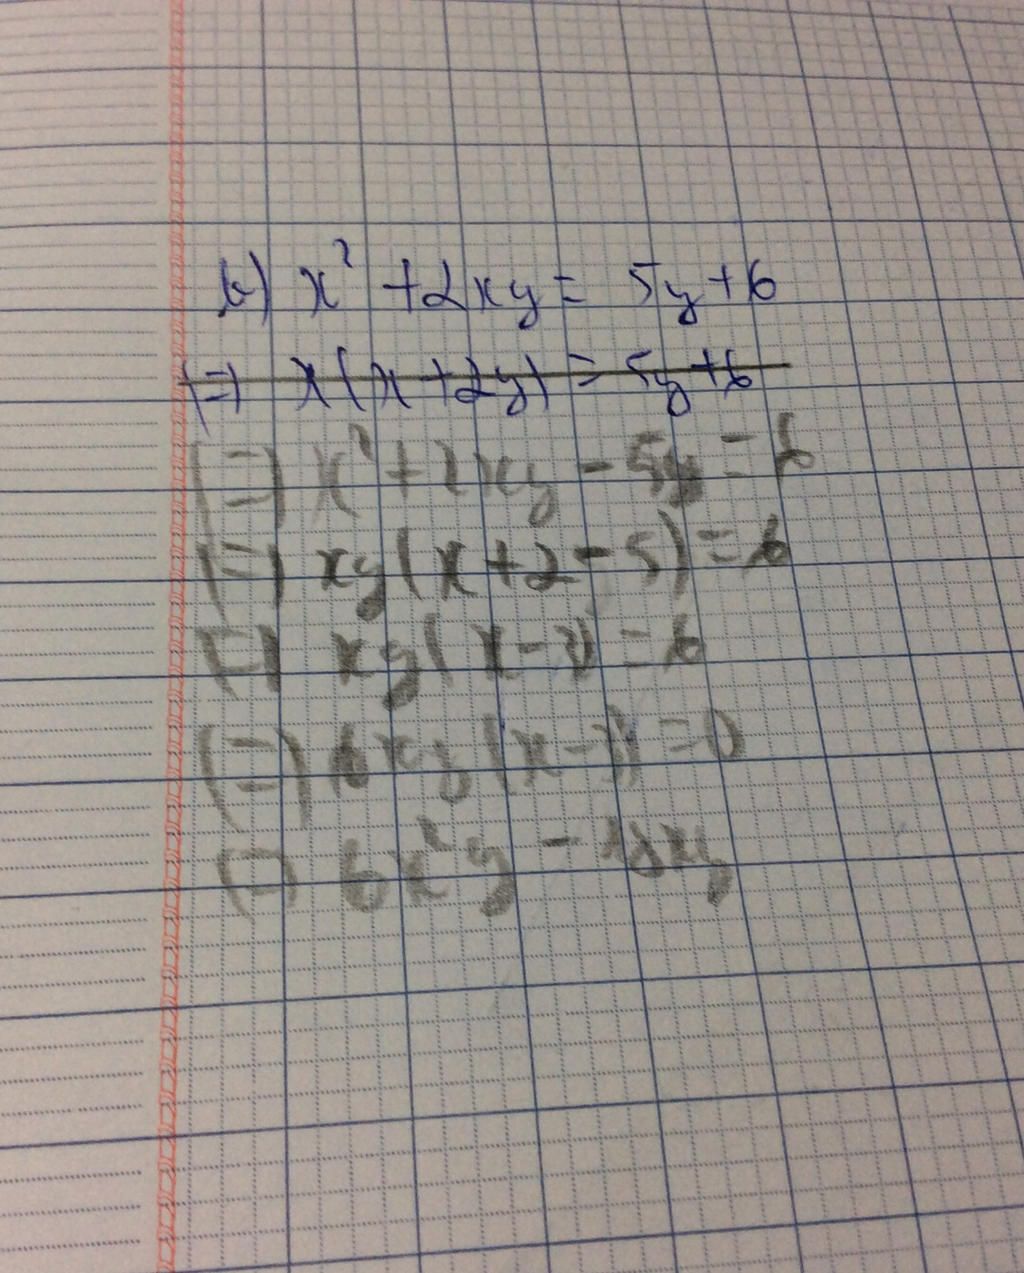 b) x² + 2xy = 5y + 6
(=) x(x + 2y) = 5y + 6
(=) x² + 2xy - 5y = 6
(=) xy(x + 2 - 5) = 6
(=) xy(x - 3) = 6
(=) 6xy(x - 3) = 0
(=) 6x²y - 18xy